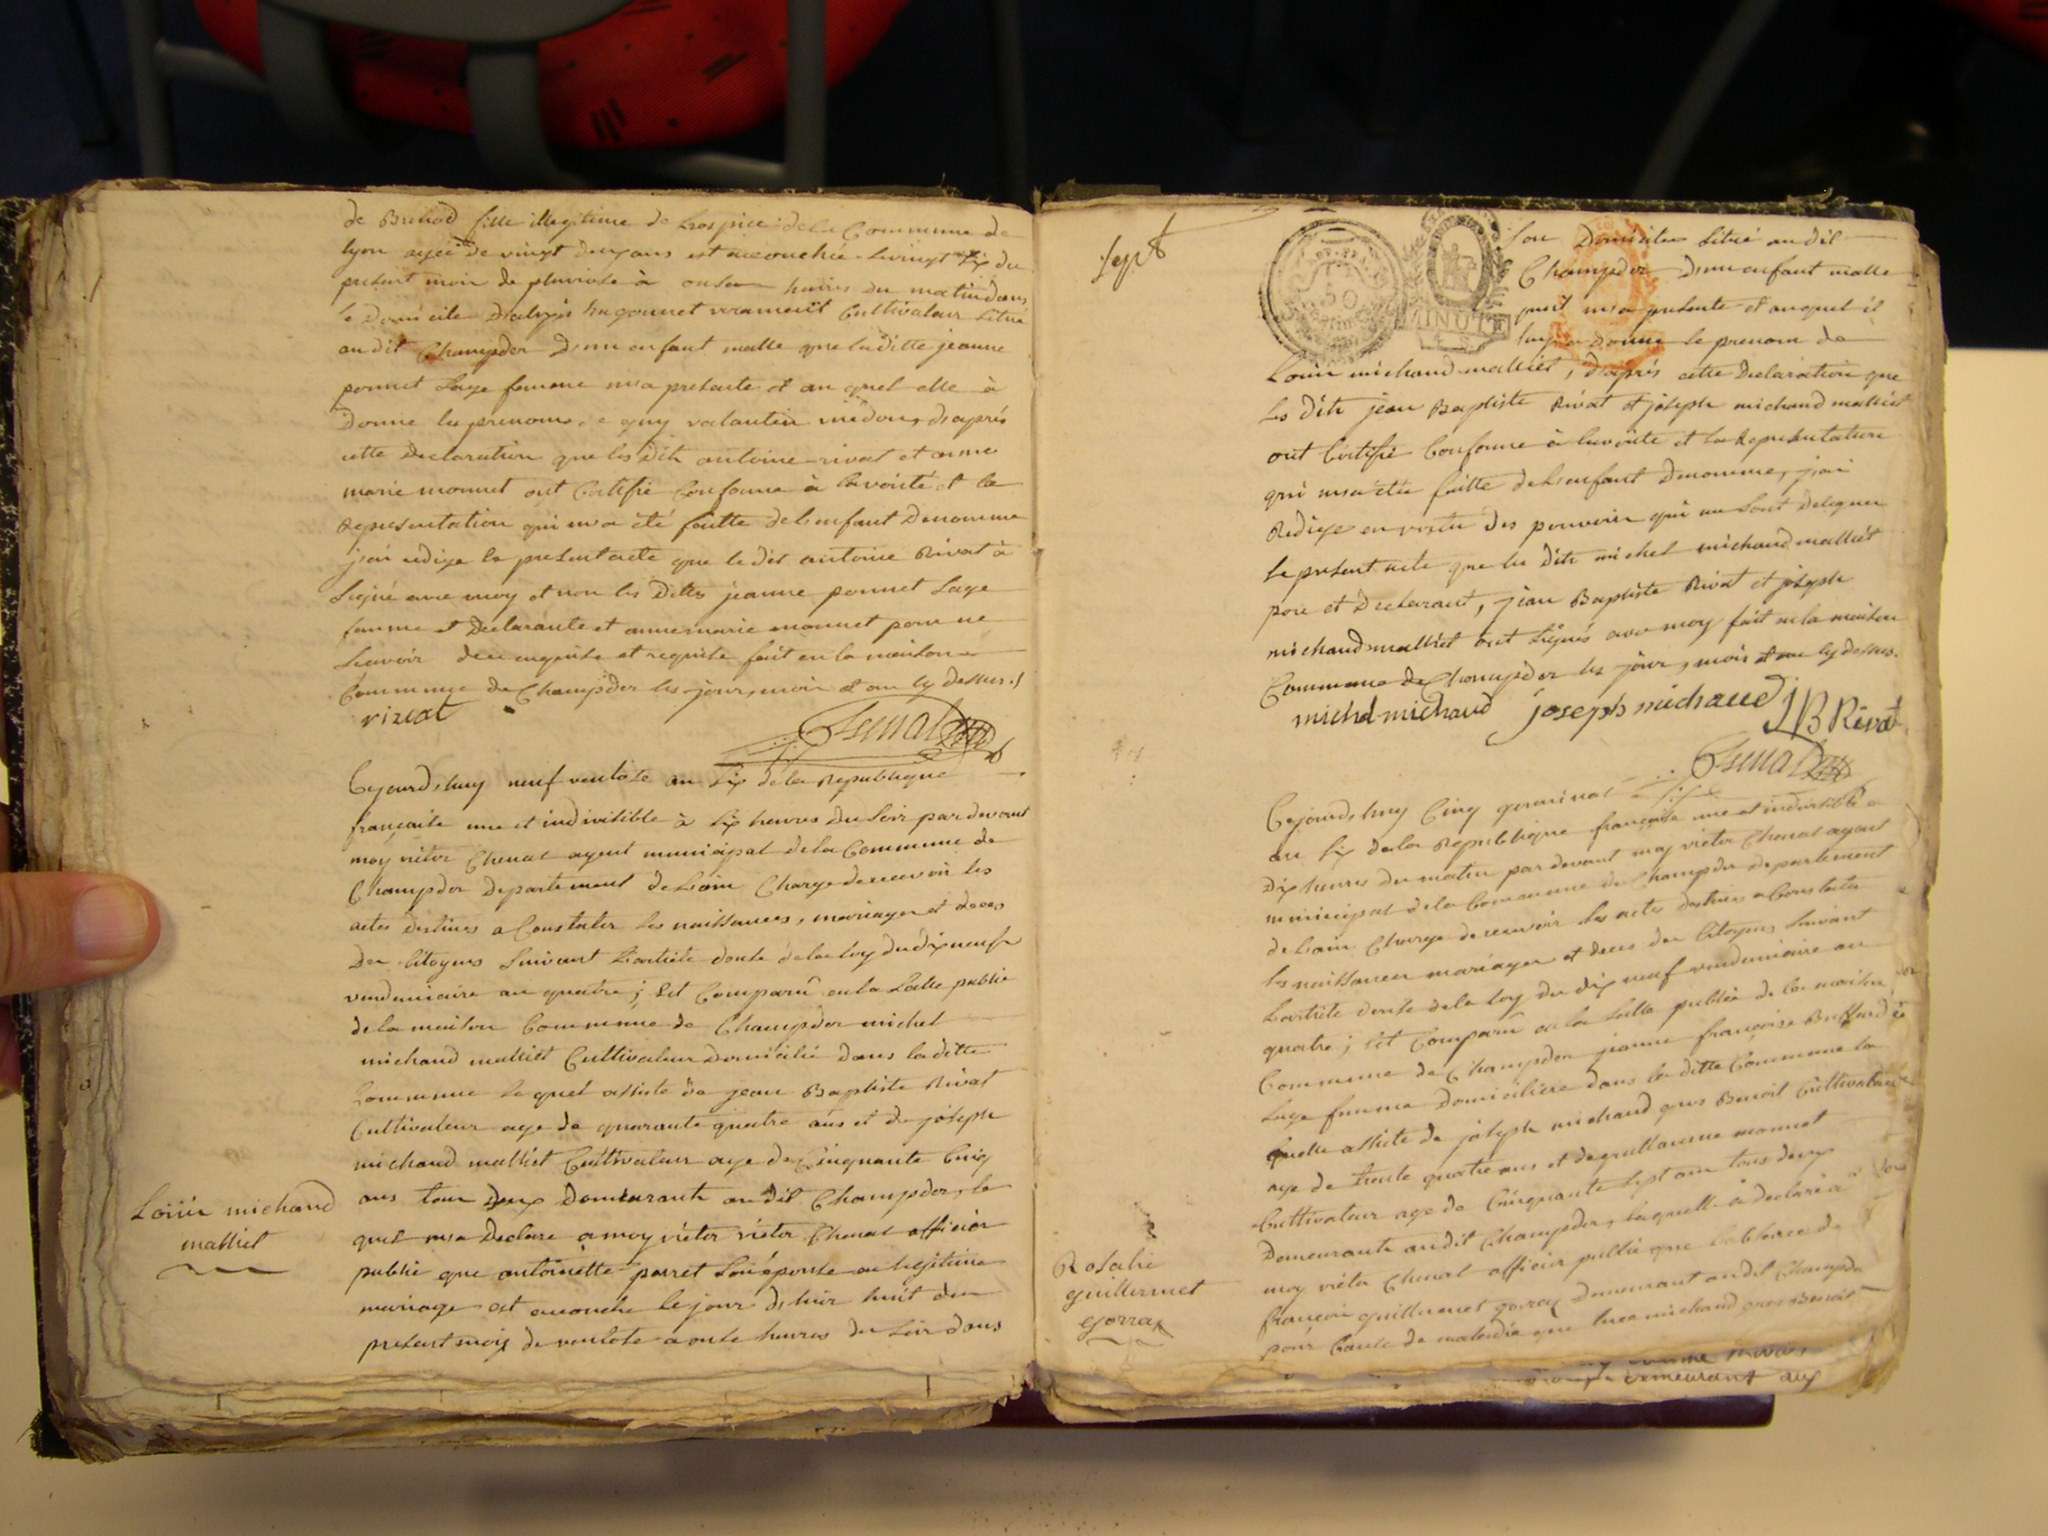 de Brenod fille illegitime de Lhospice de la Commune de
lyon agée de vingt deux ans est accouchée le vingt six du
present mois de pluviose à onse heures du matin dans
le Domicile Cultivateur situé
au dit Champdor D'un enfant malle que la ditte jeanne
ponnet sage femme m'a presenté et au quel elle à
Donne les prenoms de guy valantin D'après
cette Declaration que les Dits antoine rivat et anne
marie monnet ont Certifié Conforme à la vérité et la
Representation qui m'a été faitte de L'enfant Denomme
j'ai redige le present acte que le dit antoine Rivat à
signé avec moy et non les Dittes jeanne ponnet sage
femme et Declarante et anne marie monnet pour ne
scavoir de ce enquise et requise fait en la maison
Commune de Champdor les jour, mois et an cy dessus
rivat
Cejourd'huy neuf ventose an six de la Republique
francaise une et indivisible à six heures du soir par devant
moy victor Chenat agent municipal de la Commune de
Champdor Departement de L'ain Charge de recevoir les
actes destinés a Constater les naissances, mariages et deces
Des Citoyens suivant L'article douse de la loy du dix neuf
vendemiaire an quatre ; Est Comparû en la salle public
de la maison Commune de Champdor michel
michaud malliet Cultivateur Domicilié dans la ditte
Commune le quel assisté de jean Baptiste Rivat
Cultivateur age de quarante quatre ans et de joseph
michaud malliet Cultivateur age de Cinquante Cinq
ans tous Deux Demeurants au dit Champdor, le
quel m'a Declare a moy victor victor Chenat officier
public que antoinette parret son épouse en legitime
mariage est accouche le jour d'hier huit du
present mois de ventose a onse heures du soir dans
Loüis michaud
malliet
sept
50
MINUTE
son Domicile situé au dit
Champdor D'un enfant malle
quil m'a presente et auquel il
luy a Donne le prenom de
Loüis michaud malliet, D'aprés cette Declaration que
les Dits jean Baptiste Rivat et joseph michaud malliet
ont Certifié Conforme à la verite et la Representation
qui m'a été faitte de L'enfant Denomme, j'ai
Redige en vertu des pouvoirs qui me sont Delegues
le present acte que les Dits michel michaud malliet
pere et Declarant, jean Baptiste Rivat et joseph
michaud malliet ont signés avec moy fait en la maison
Commune de Champdor les jour, mois et an cy dessus.
michel michaud joseph michaud JB Rivat
Cejourd'huy Cinq germinal
an six de la Republique française une et indivisible a
Dix heures du matin par devant moy victor Chenat agent
municipal de la Commune de Champdor departement
de L'ain Charge de recevoir les actes destines a Constater
les naissances mariages et deces des Citoyens suivant
L'article douse de la loy du dix neuf vendemiaire an
quatre ; Est Comparû en la salle public de la maison
Commune de Champdor jeanne françoise
sage femme Domiciliée dans la ditte Commune la
quelle assisté de joseph michaud gros Benoit Cultivateur
age de trente quatre ans et de guillaume monnet
Cultivateur age de Cinquante sept ans tous deux
Demeurants au dit Champdor, laquelle à declaré a
moy victor Chenat officier public que L'absence de
françois guillermet gorraz Demeurant au dit Champdor
pour Cause de maladie que michaud gros Benoit
demeurant aux
Rosalie
guillermet
gorraz